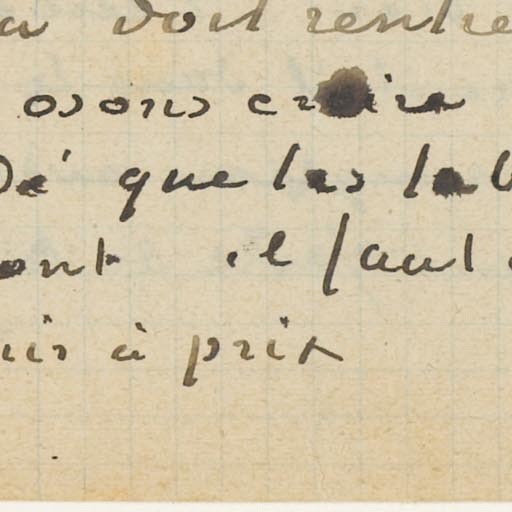 a doit rentre
osons croire
Dé que les tab
ont il faut
nir à prix